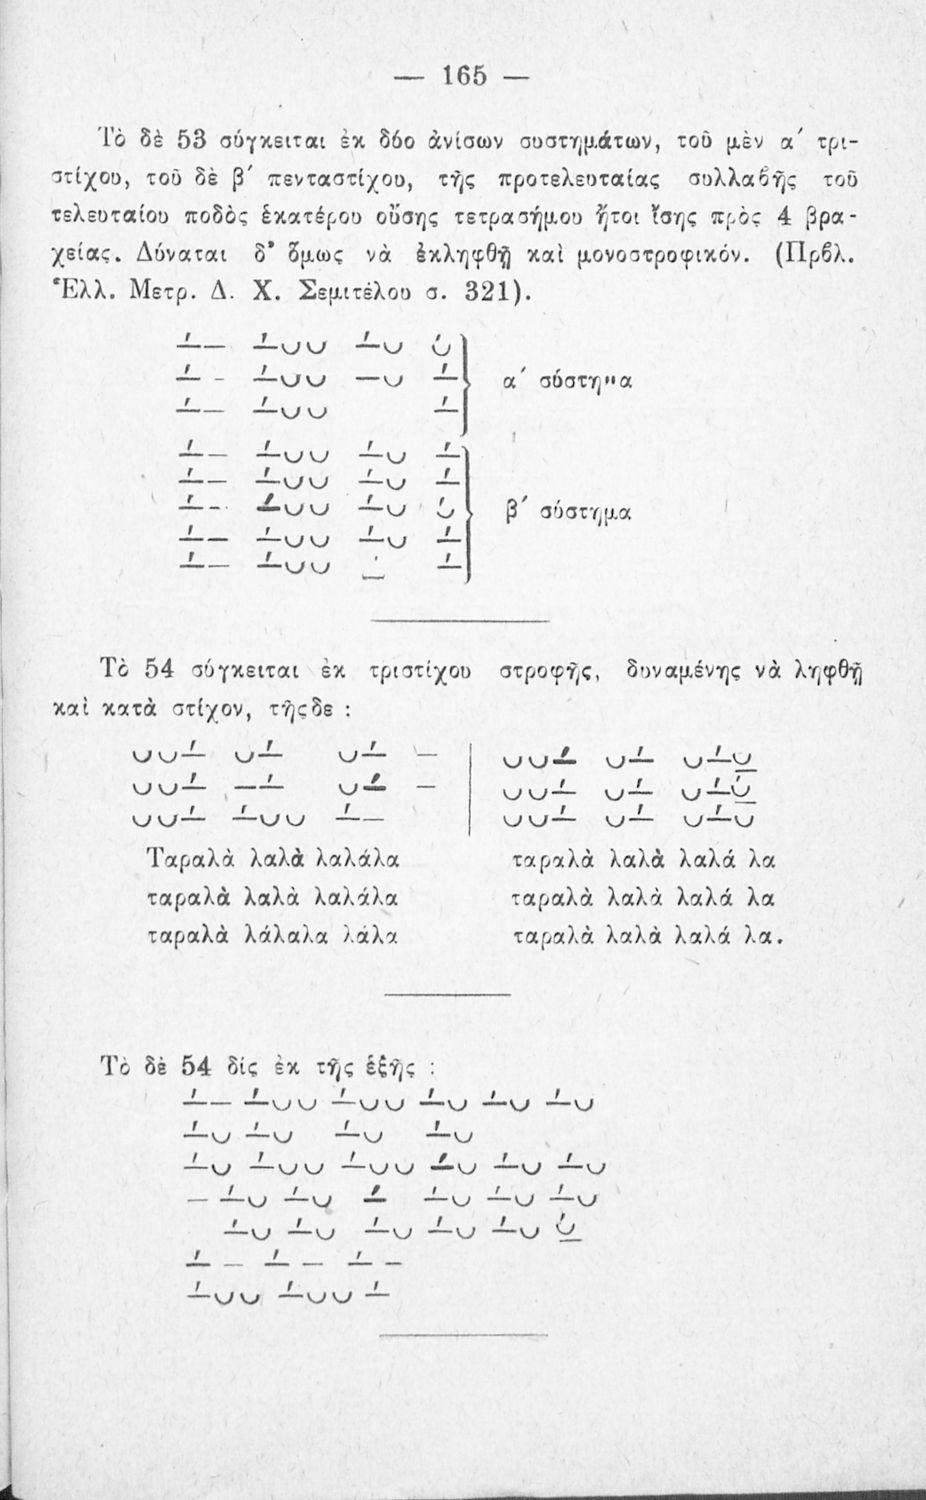 — 165 —
Τὸ δὲ 53 σύγκειται ἐκ δύο ἀνίσων συστημάτων, τοῦ μὲν α΄ τρι-
στίχου, τοῦ δὲ β΄ πενταστίχου, τῆς προτελευταίας συλλαβῆς τοῦ
τελευταίου ποδὸς ἑκατέρου οὔσης τετρασήμου ἤτοι ἴσης πρὸς 4 βρα-
χείας. Δύναται δ’ ὅμως νὰ ἐκληφθῇ καὶ μονοστροφικόν. (Πρβλ.
Ἑλλ. Μετρ. Δ. Χ. Σεμιτέλου σ. 321).
α΄ σύστημα
β΄ σύστημα
Τὸ 54 σύγκειται ἐκ τριστίχου στροφῆς, δυναμένης νὰ ληφθῇ
καὶ κατὰ στίχον, τῆςδε :
Ταραλὰ λαλὰ λαλάλα ταραλὰ λαλὰ λαλά λα
ταραλὰ λαλὰ λαλάλα ταραλὰ λαλὰ λαλά λα
ταραλὰ λάλαλα λάλα ταραλὰ λαλὰ λαλά λα.
Τὸ δὲ 54 δίς ἐκ τῆς ἑξῆς :